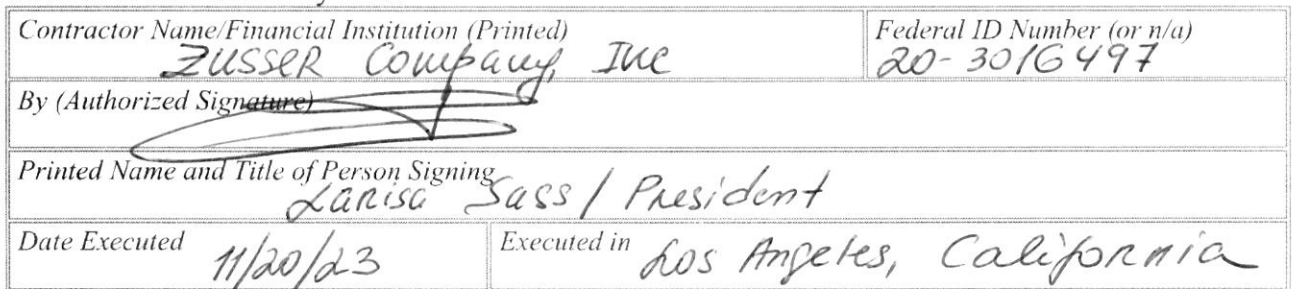 Contractor Name/Financial Institution (Printed)
Zusser Company, Inc
Federal ID Number (or n/a)
20-3016497
By (Authorized Signature)
Printed Name and Title of Person Signing
Larisa Sass / President
Date Executed
11/20/23
Executed in
Los Angeles, California